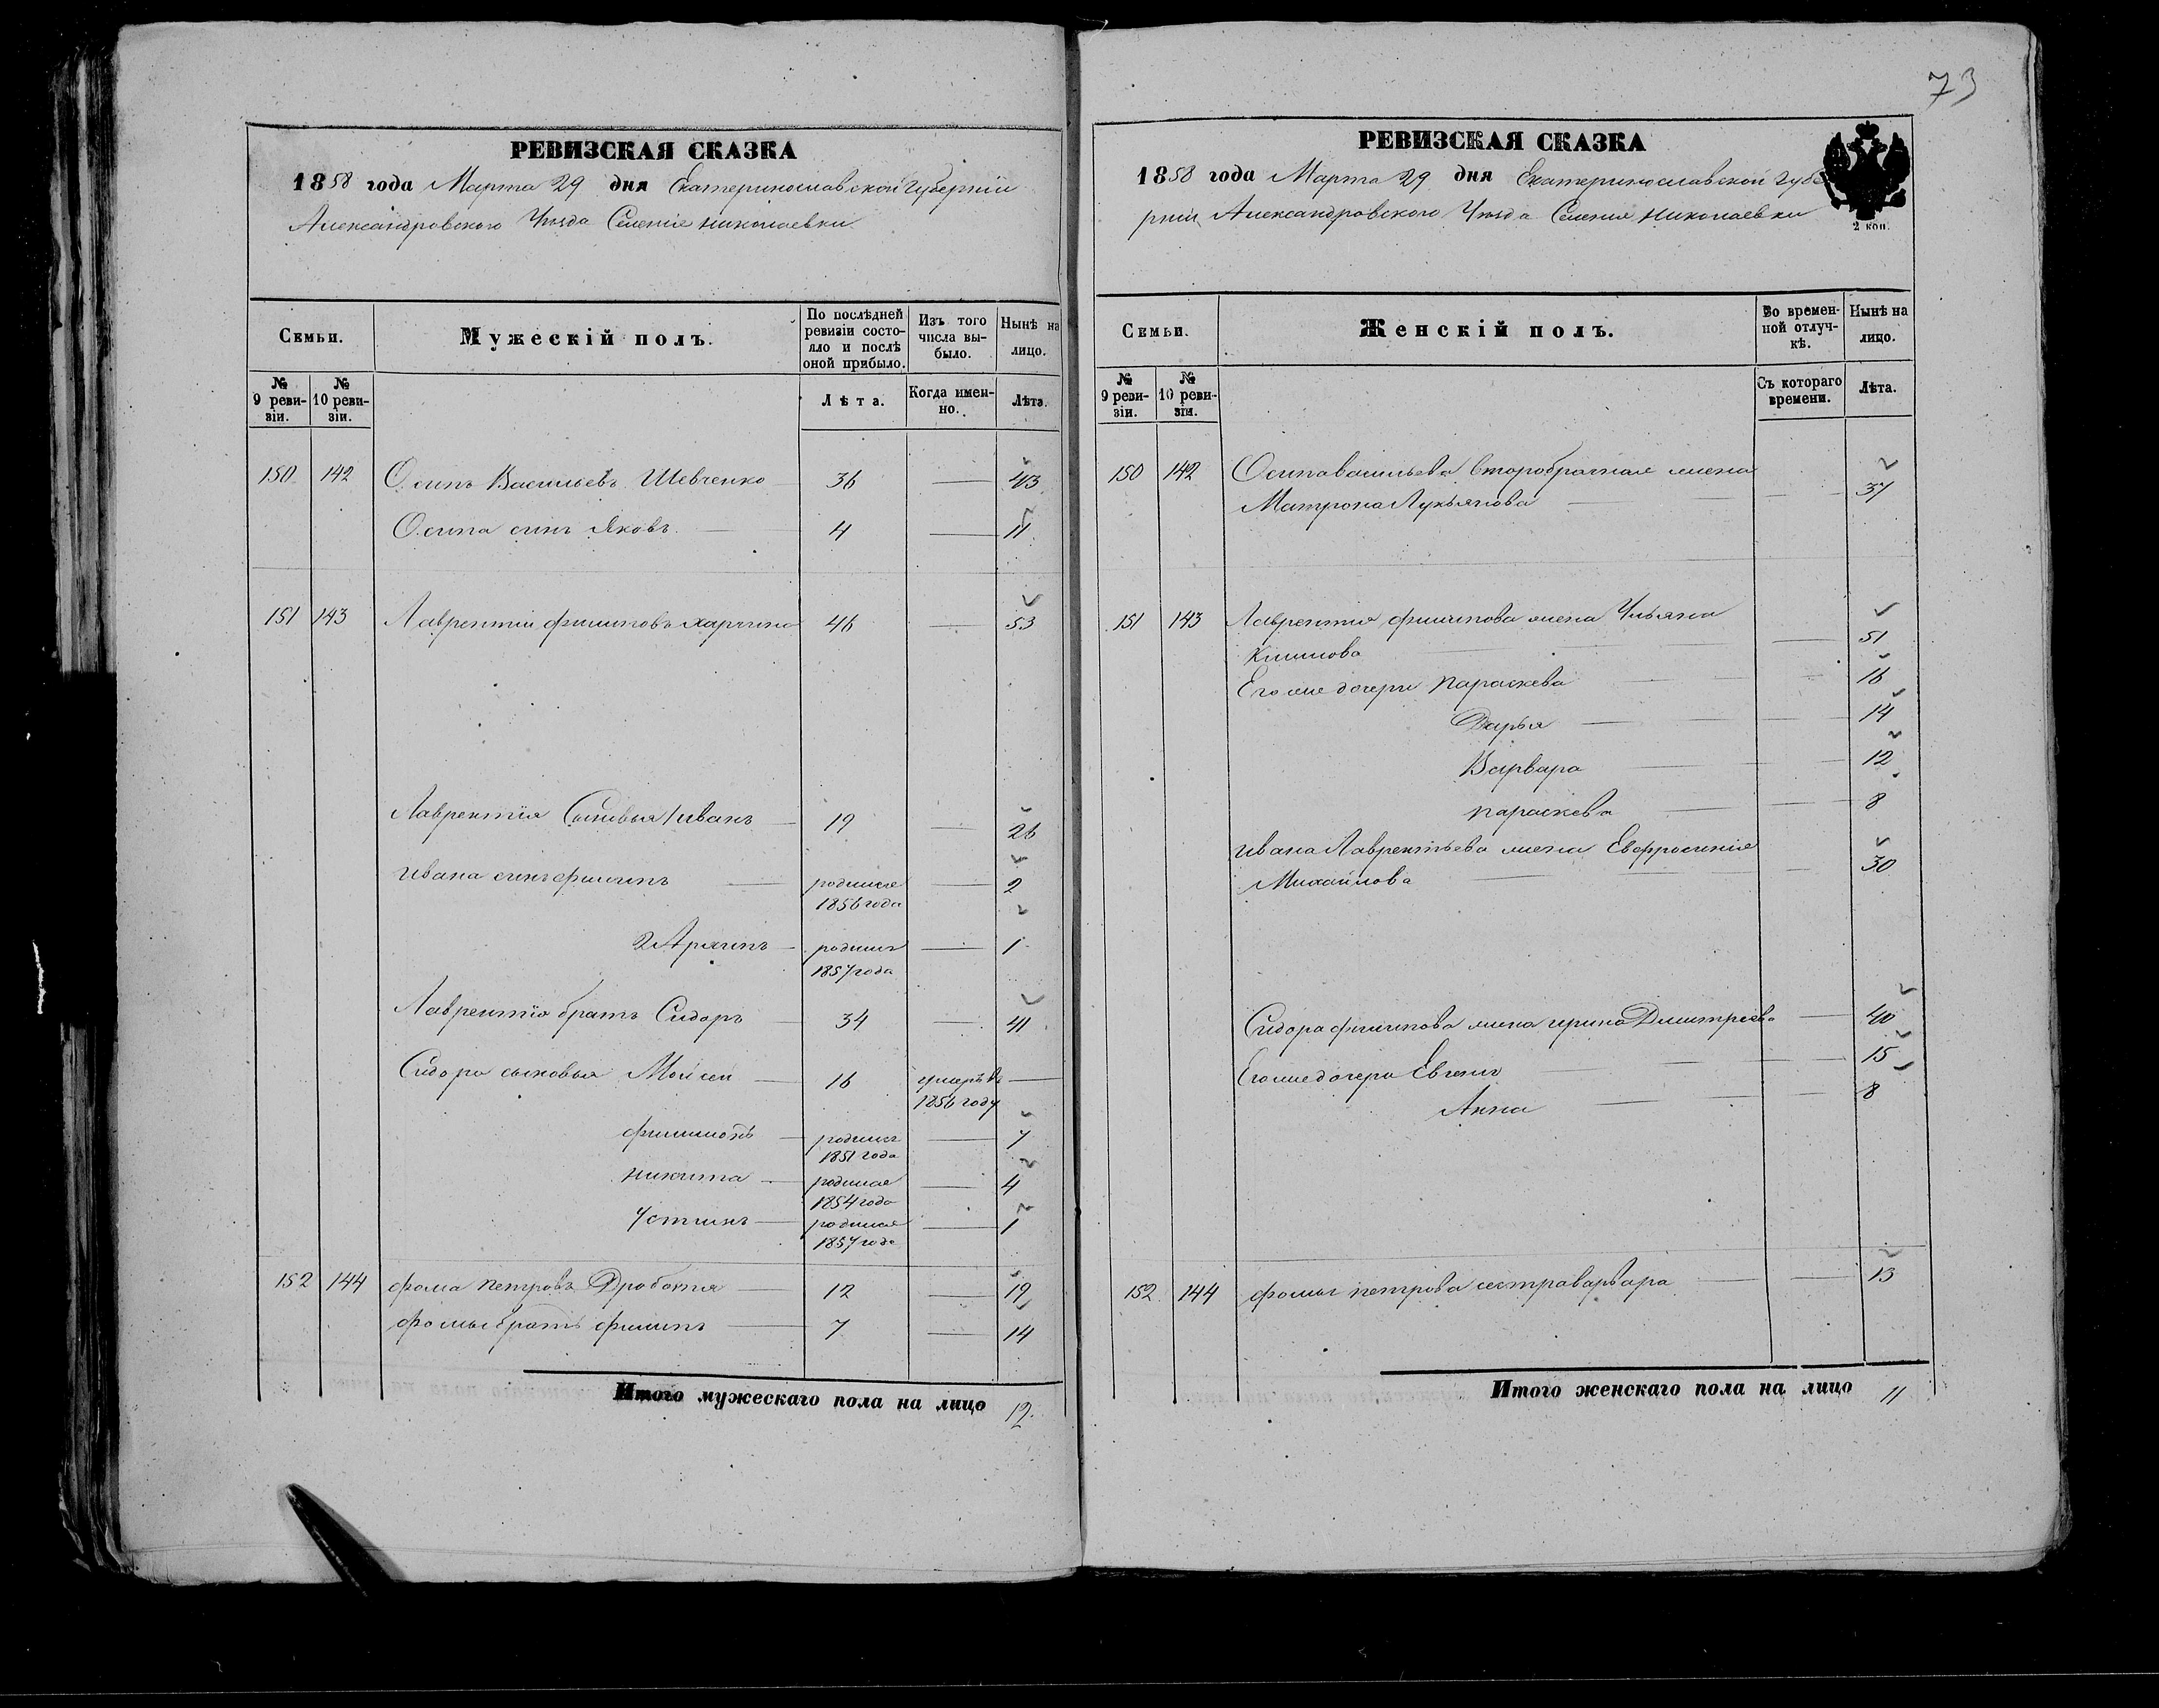 73
РЕВИЗСКАЯ СКАЗКА
1858 года Марта 29 дня Екатеринославской Губернiи
Александровского Уѣзда Селенiе Николаевки
Семьи.
Мужескiй полъ.
По послѣдней ревизiи состояло и послѣ оной прибыло.
Изъ того числа выбыло.
Нынѣ на лицо.
№ 9 ревизiи.
№ 10 ревизiи.
Лѣта.
Когда именно.
Лѣта.
150 142 Осипъ Васильевъ Шевченко 36 — 43
Осипа сынъ Яковъ 4 — 11
151 143 Лаврентiй филиповъ 46 — 53
Лаврентiя Сыновья 1 иванъ 19 — 26
Ивана сынъ филипъ родился 1856 года — 2
2 родился 1857 года — 1
Лаврентiя братъ Сидоръ 34 — 41
Сидора сыновья Мойсей 16 умеръ въ 1856 году —
филимонъ родился 1851 года — 7
никита родился 1854 года — 4
Устинъ родился 1857 года — 1
152 144 фома петровъ Дроботя 12 — 19
фомы братъ филипъ 7 — 14
Итого мужескаго пола на лицо 12.
РЕВИЗСКАЯ СКАЗКА
1858 года Марта 29 дня Екатеринославской губе
рнiи Александровского Уѣзда Селения Николаевки
2 коп.
Семьи.
Женскiй полъ.
Во временной отлучкѣ.
Нынѣ на лицо.
№ 9 ревизiи.
№ 10 ревизiи.
Съ котораго времени.
Лѣта.
150 142 Осипа васильева второбрачная жена
Матрона Лукьянова — 37
151 143 Лаврентия филипова жена Ульяна
Климова — 51
Его же дочери параскева — 16
Дарья — 14
Варвара — 12
параскева — 8
Ивана Лаврентьева жена Евфросинiя
Михайлова — 30
Сидора филипова жена ирина Димитрiева — 40
Его же дочери — 15
Анна — 8
152 144 фомы петрова сестра варвара — 13
Итого женскаго пола на лицо 11